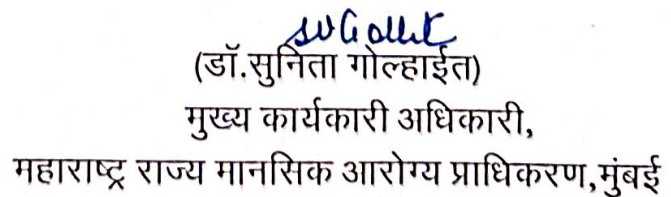 (डॉ.सुनिता गोल्हाईत)
मुख्य कार्यकारी अधिकारी,
महाराष्ट्र राज्य मानसिक आरोग्य प्राधिकरण,मुंबई